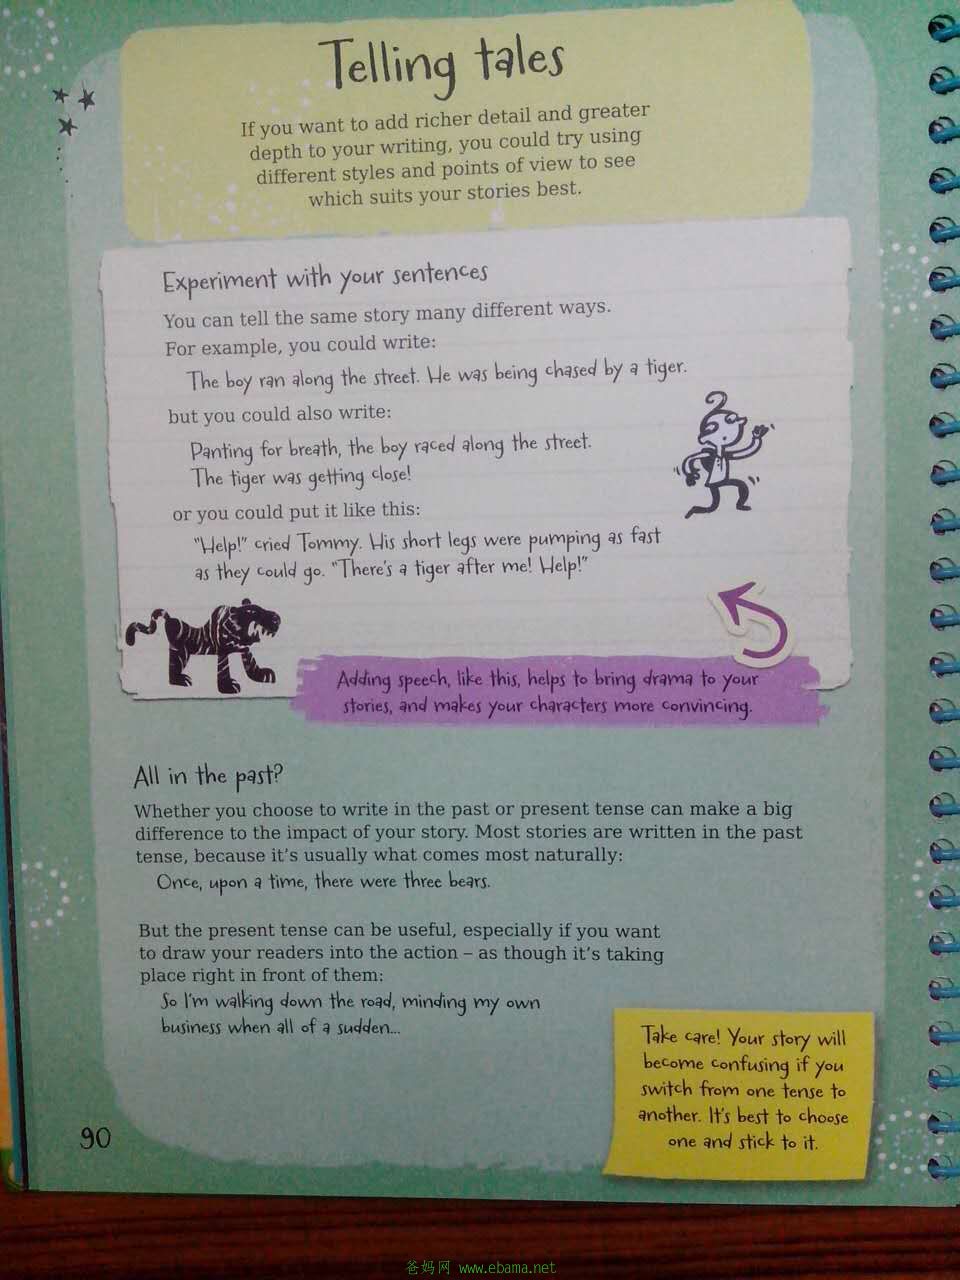 Telling tales
If you want to add richer detail and greater
depth to your writing, you could try using
different styles and points of view to see
which suits your stories best.
Experiment with your sentences
You can tell the same story many different ways.
For example, you could write:
The boy ran along the street. He was being chased by a tiger.
but you could also write:
Panting for breath, the boy raced along the street.
The tiger was getting close!
or you could put it like this:
"Help!" cried Tommy. His short legs were pumping as fast
as they could go. "There's a tiger after me! Help!"
Adding speech, like this, helps to bring drama to your
stories, and makes your characters more convincing.
All in the past?
Whether you choose to write in the past or present tense can make a big
difference to the impact of your story. Most stories are written in the past
tense, because it's usually what comes most naturally:
Once, upon a time, there were three bears.
But the present tense can be useful, especially if you want
to draw your readers into the action – as though it's taking
place right in front of them:
So I'm walking down the road, minding my own
business when all of a sudden...
Take care! Your story will
become confusing if you
switch from one tense to
another. It's best to choose
one and stick to it.
90
爸妈网 www.ebama.net